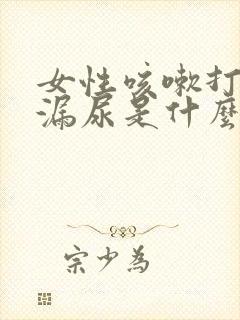 女性咳嗽打
漏尿是什麼
宗少為